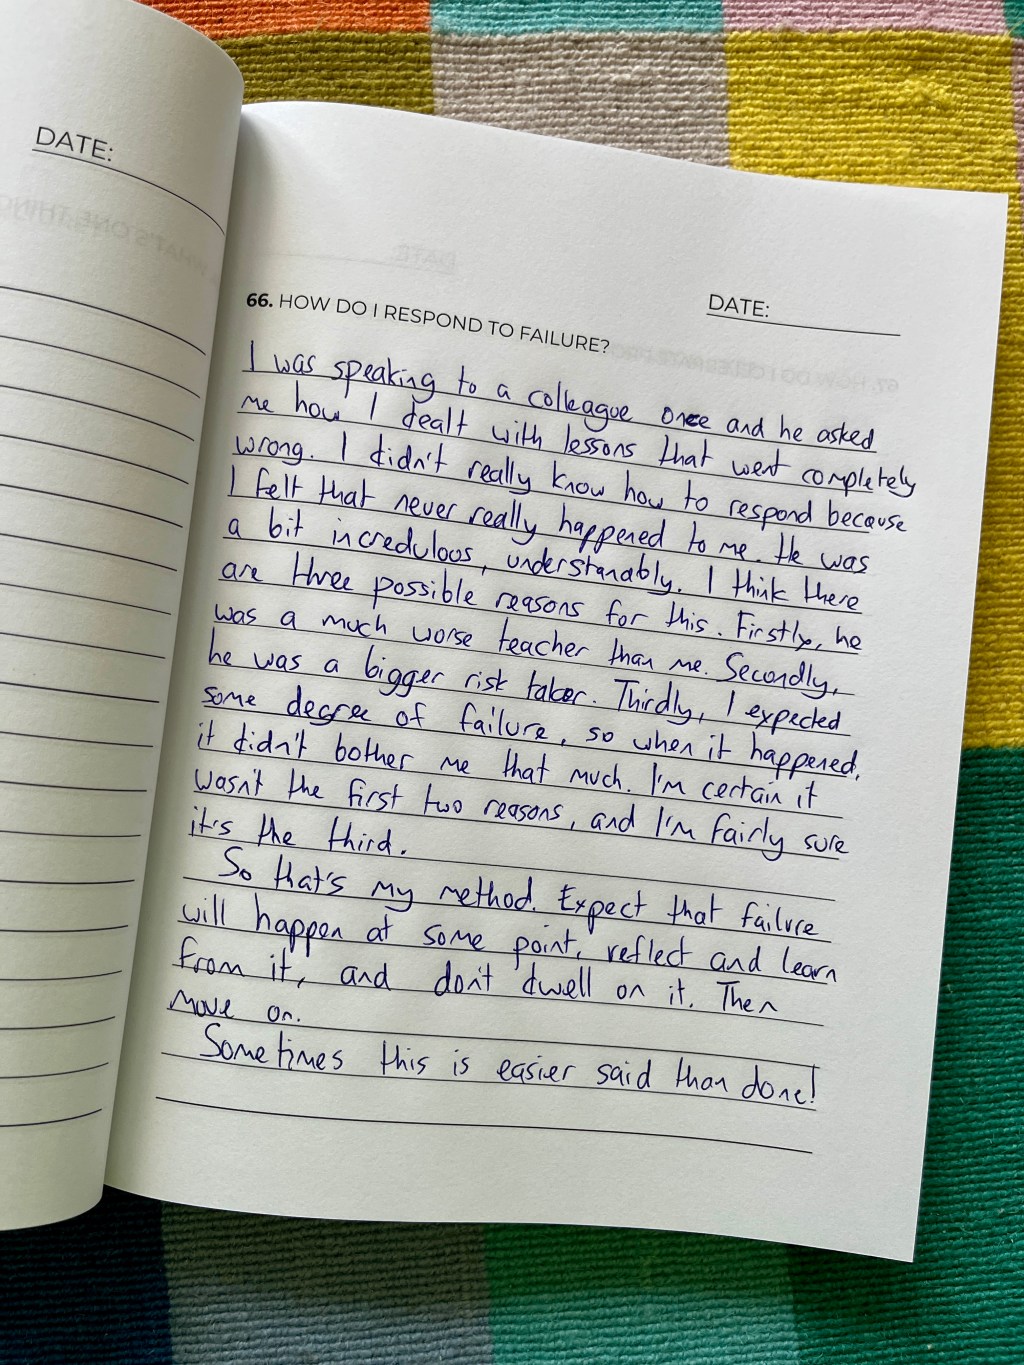 DATE:
DATE:
66. HOW DO I RESPOND TO FAILURE?
I was speaking to a colleague once and he asked
me how I dealt with lessons that went completely
wrong. I didn't really know how to respond because
I felt that never really happened to me. He was
a bit incredulous, understanably. I think there
are three possible reasons for this. Firstly, he
was a much worse teacher than me. Secondly,
he was a bigger risk taker. Thirdly, I expected
some degree of failure, so when it happened,
it didn't bother me that much. I'm certain it
wasn't the first two reasons, and I'm fairly sure
it's the third.
So that's my method. Expect that failure
will happen at some point, reflect and learn
from it, and don't dwell on it. Then
move on.
Sometimes this is easier said than done!